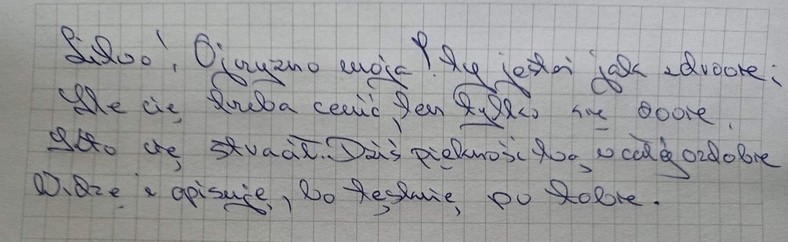 Litwo! Ojczyzno moja! ty jesteś jak zdrowie;
Ile cię trzeba cenić, ten tylko się dowie,
Kto cię stracił. Dziś piękność twą w całej ozdobie
Widzę i opisuję, bo tęsknię po tobie.